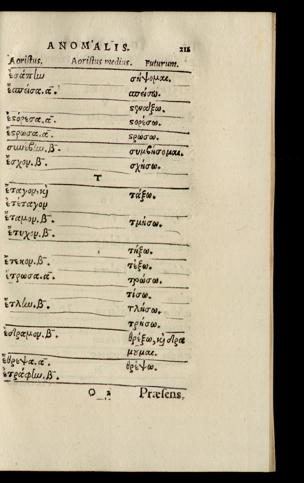 ANOMALIS. 211
Aoristus. Aoristus medius. Futurum.
ἐσάπην σήψομαι.
ἔσπεισα.α. σπείσω.
ἐστόρεσα.α. στορέσω.
ἔστρωσα.α. στρώσω.
συνέβην.β. συμβήσομαι.
ἔσχον.β. σχήσω.
Τ
ἔταγον, καὶ τάξω.
ἐτέταγον
ἔταμον.β. τμήσω.
ἔτυχον.β.
τήξω.
ἔτεκον.β. τέξω.
ἔτρωσα.α. τρώσω.
τίσω.
ἔτλην.β. τλήσω.
τρήσω.
ἔδραμον.β. θρέξω, καὶ δρα
μοῦμαι.
ἔθρεψα.α. θρέψω.
ἐτράφην.β.
O 2 Præsens.